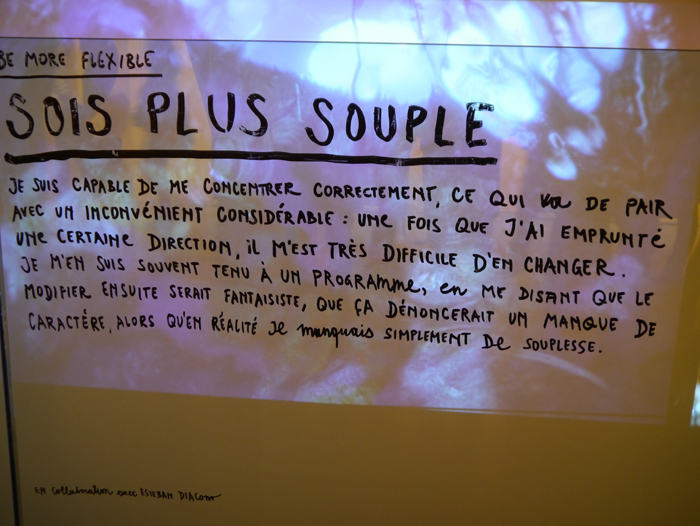 BE MORE FLEXIBLE
SOIS PLUS SOUPLE
JE SUIS CAPABLE DE ME CONCENTRER CORRECTEMENT, CE QUI VA DE PAIR
AVEC UN INCONVÉNIENT CONSIDÉRABLE : UNE FOIS QUE J'AI EMPRUNTÉ
UNE CERTAINE DIRECTION, IL M'EST TRÈS DIFFICILE D'EN CHANGER.
JE M'EN SUIS SOUVENT TENU À UN PROGRAMME, EN ME DISANT QUE LE
MODIFIER ENSUITE SERAIT FANTAISISTE, QUE ÇA DÉNONCERAIT UN MANQUE DE
CARACTÈRE, ALORS QU'EN RÉALITÉ JE manquais SIMPLEMENT DE SOUPLESSE.
EN collaboration avec ESTEBAN